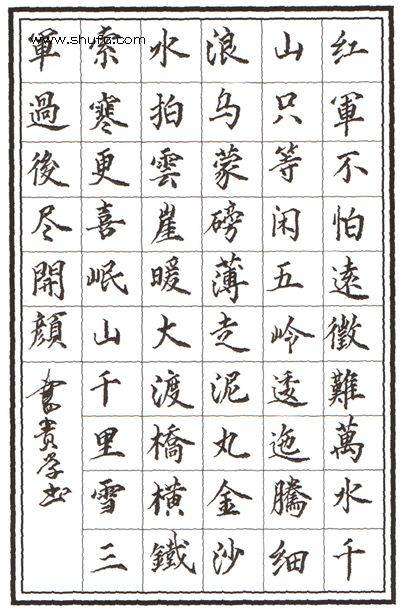 www.shufa.com
红軍不怕遠徵難萬水千
山只等闲五岭逶迤騰细
浪乌蒙磅薄走泥丸金沙
水拍雲崖暖大渡橋横鐵
索寒更喜岷山千里雪三
軍過後尽開顔